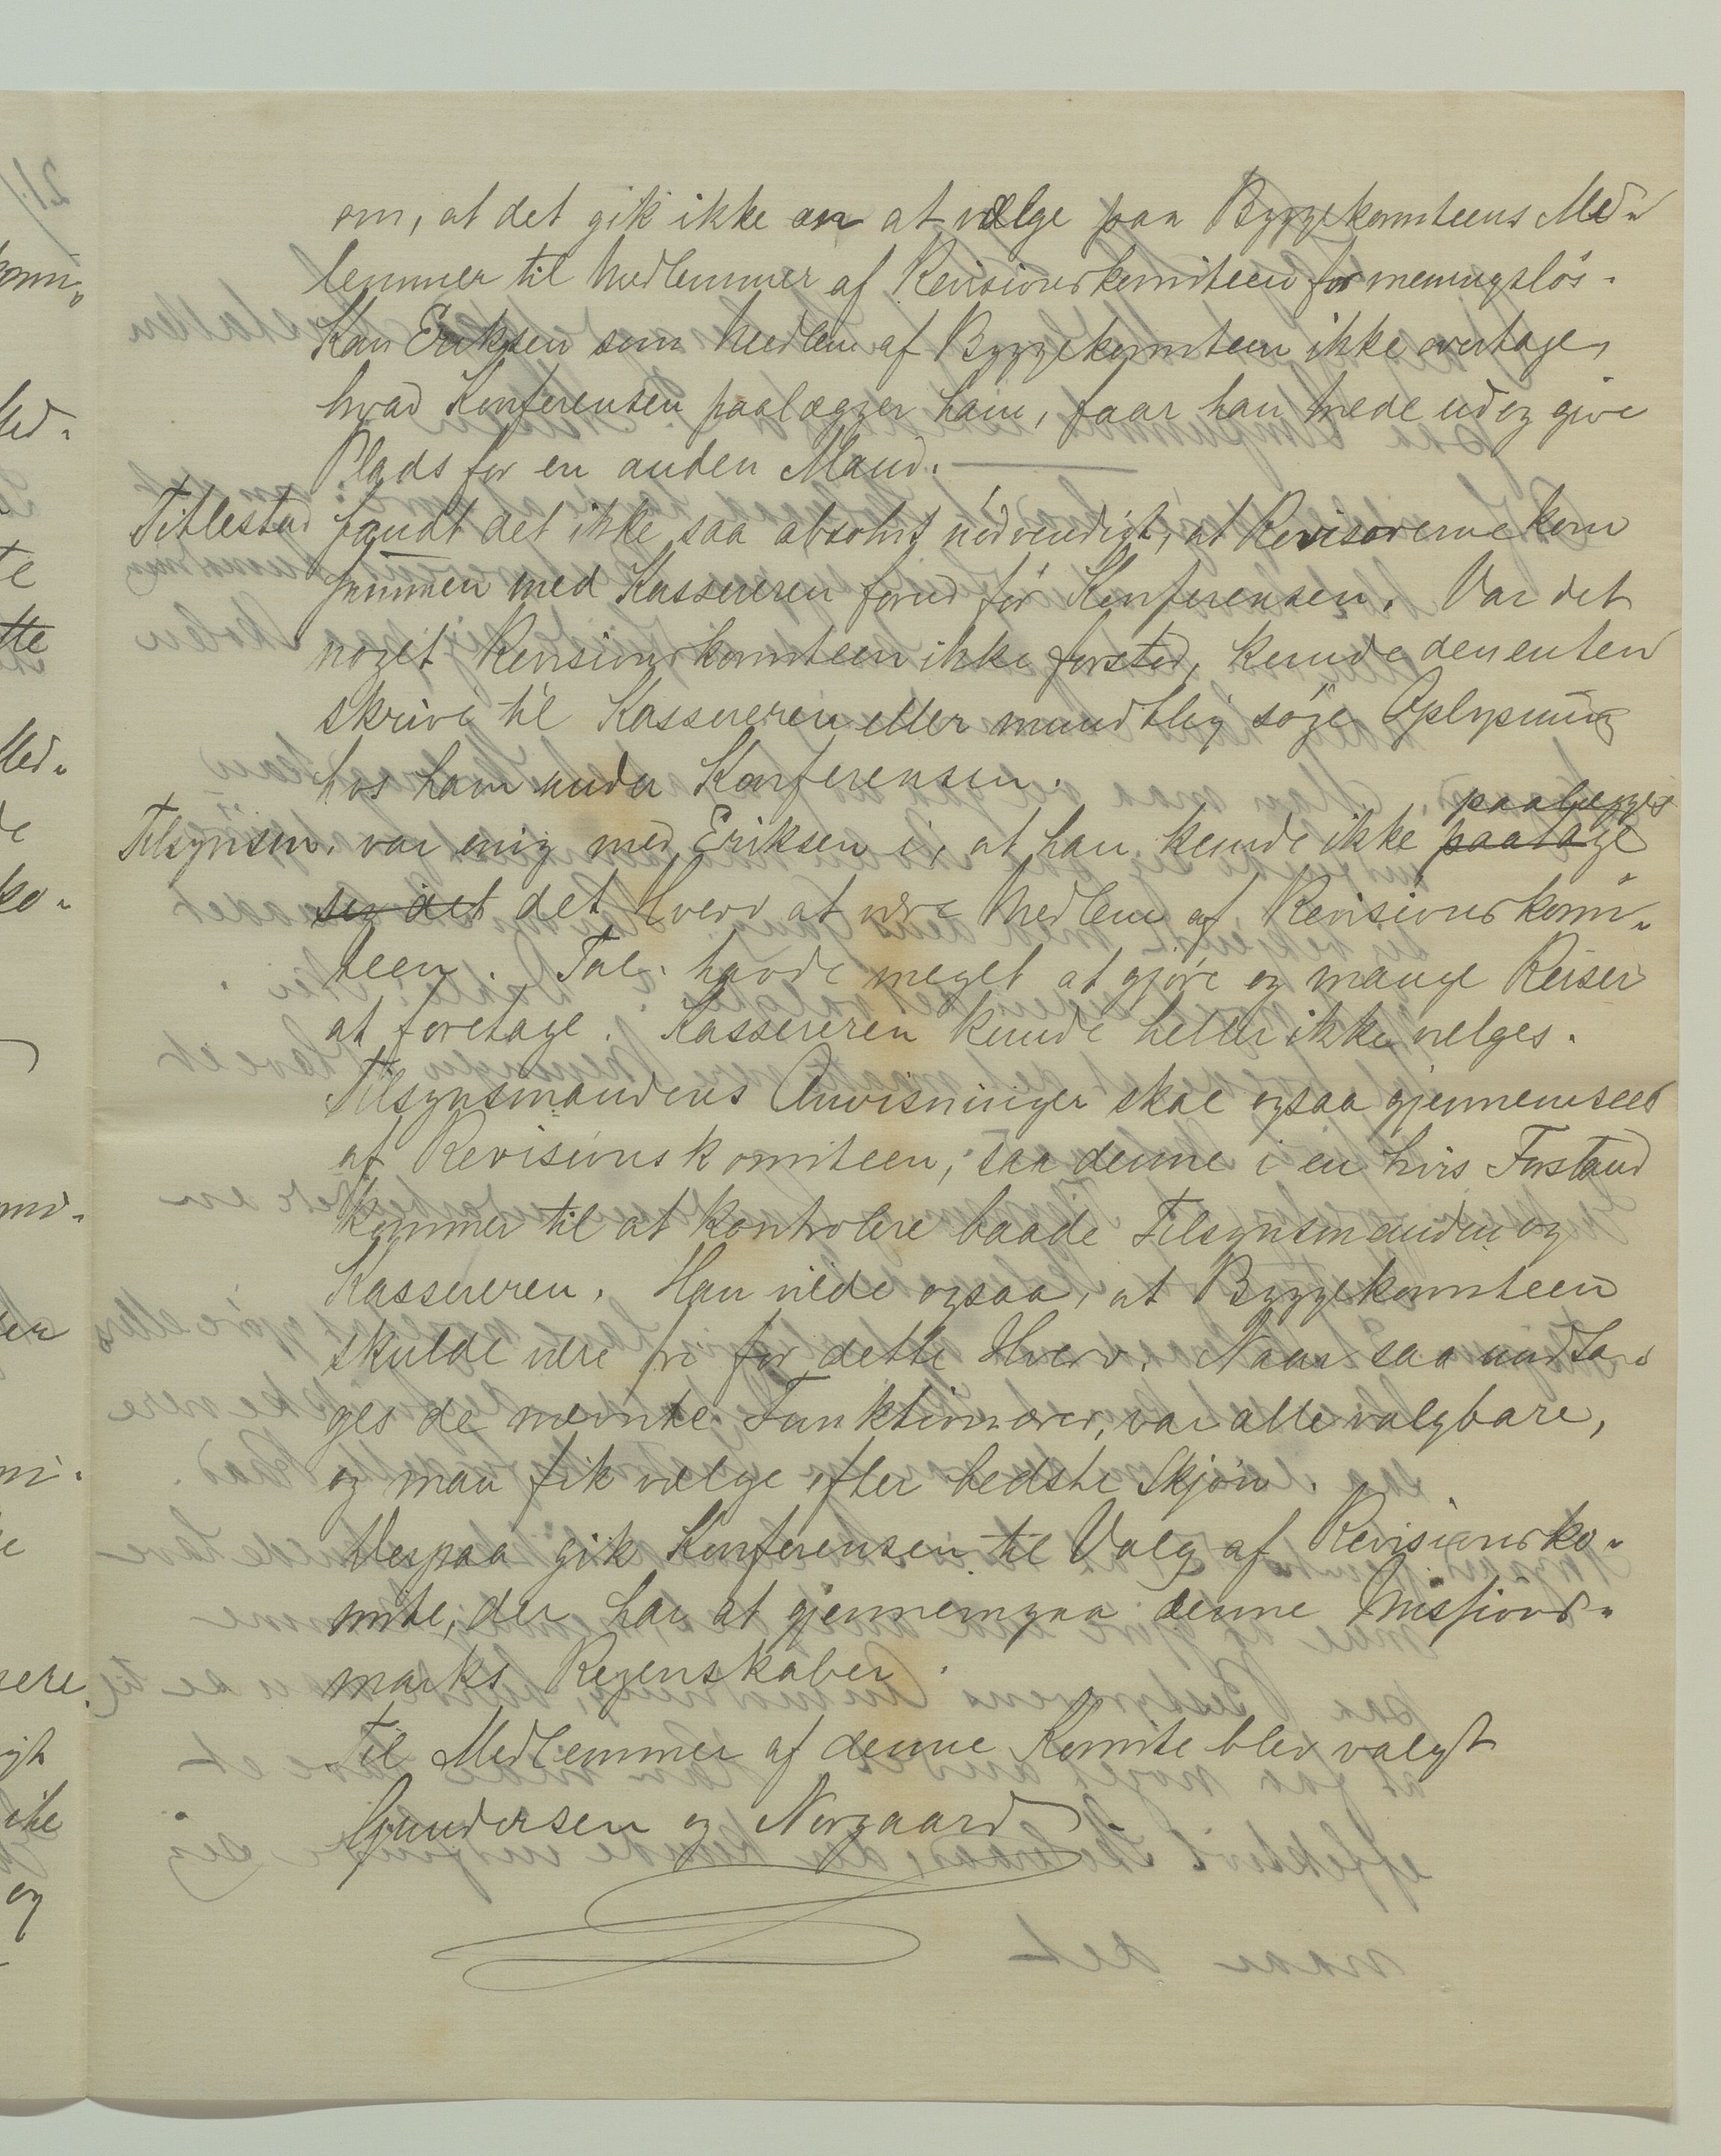 om, at det gik ikke an at vælge paa Byggekomiteens Med-
lemmer til Medlemmer af Revisionskomiteen for meningsløs.
Kan Eriksen som Medlem af Byggekomiteen ikke overtage,
hvad Konferensen paalægger ham, faar han træde ud og give
Plads for en anden Mand.
Titlestad fandt det ikke saa absolut nødvendigt, at Revisorerne kom
sammen med Kassereren forud før Konferensen. Var det
noget Revisionskomiteen ikke forstod, kunde den enten
skrive til Kassereren eller mundtlig søge Oplysning
hos ham under Konferensen.
Tilsynsm. var enig med Eriksen i, at han kunde ikke paatage paalægges
sig det det Hverv at være Medlem af Revisionskomi-
teen. Tal. havde meget at gjøre og mange Reiser
at foretage. Kassereren kunde heller ikke velges.
Tilsynsmandens Anvisninger skal ogsaa gjennemsees
af Revisionskomiteen, saa denne i en hvis Forstand
kommer til at kontrolere baade Tilsynsmanden og
Kassereren. Han vilde ogsaa, at Byggekomiteen
skulde være fri for dette Hverv. Naar saa undta-
ges de nævnte Funktionærer, var alle valgbare,
og man fik vælge efter bedste Skjøn.
Derpaa gik Konferensen til Valg af Revisionsko-
mite, der har at gjennemgaa denne Missions-
marks Regenskaber.
Til Medlemmer af denne Komite blev valgt
Gundersen og Norgaard.